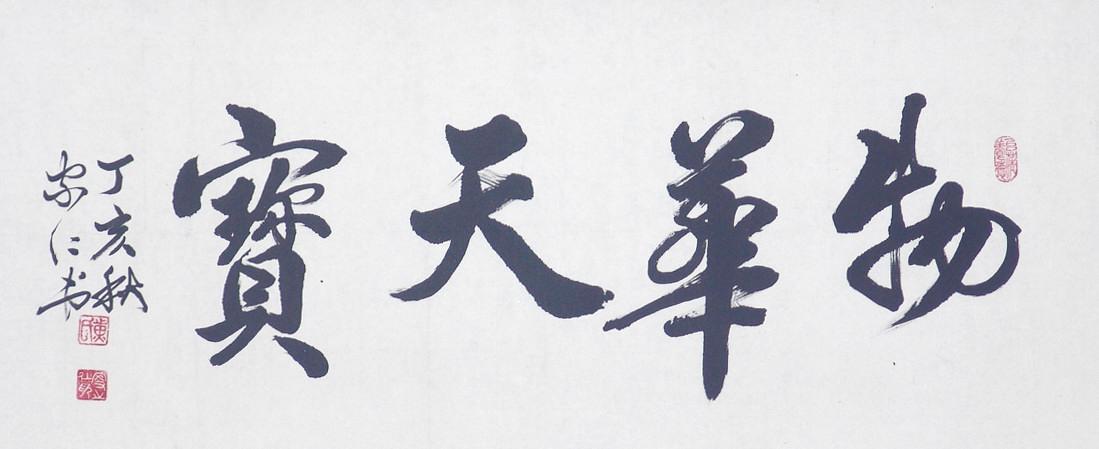 物華天寶
丁亥秋
家仁书